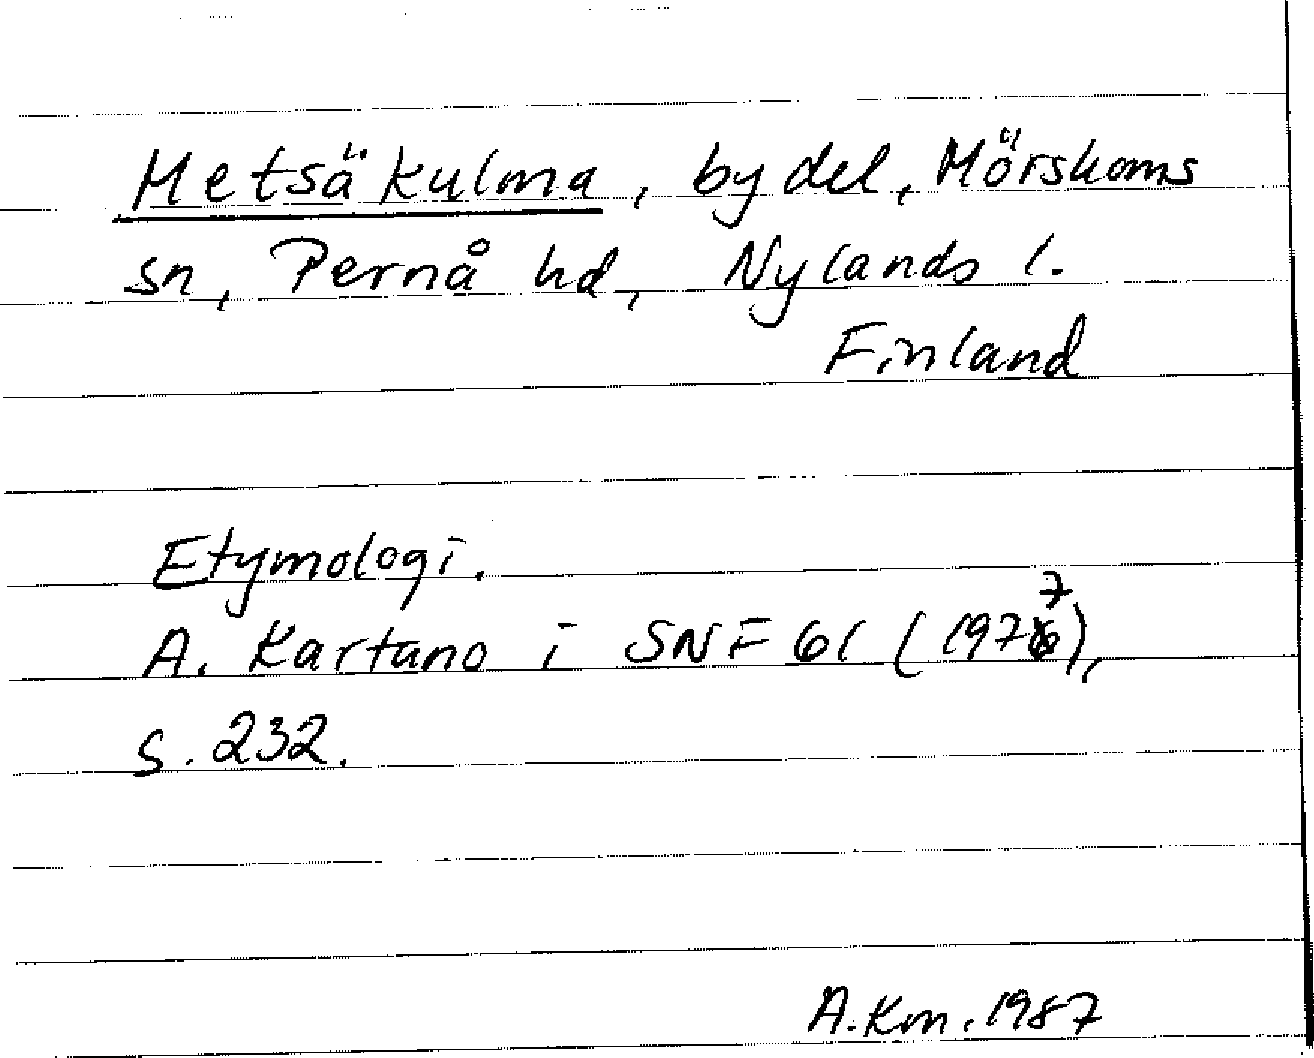 Metsäkulma, bydel, Mörskoms
sn, Pernå hd, Nylands l.
Finland
Etymologi.
A. Kartano i SNF 61 (1977),
s. 232.
A.Km. 1987